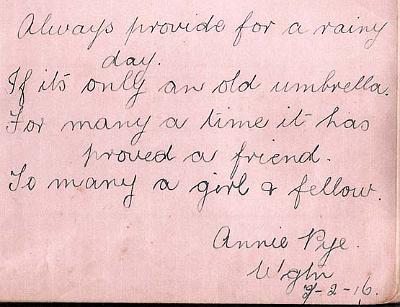 Always provide for a rainy
day.
If its only an old umbrella.
For many a time it has
proved a friend.
To many a girl & fellow.
Annie Pye.
W'gtn
2-2-16.